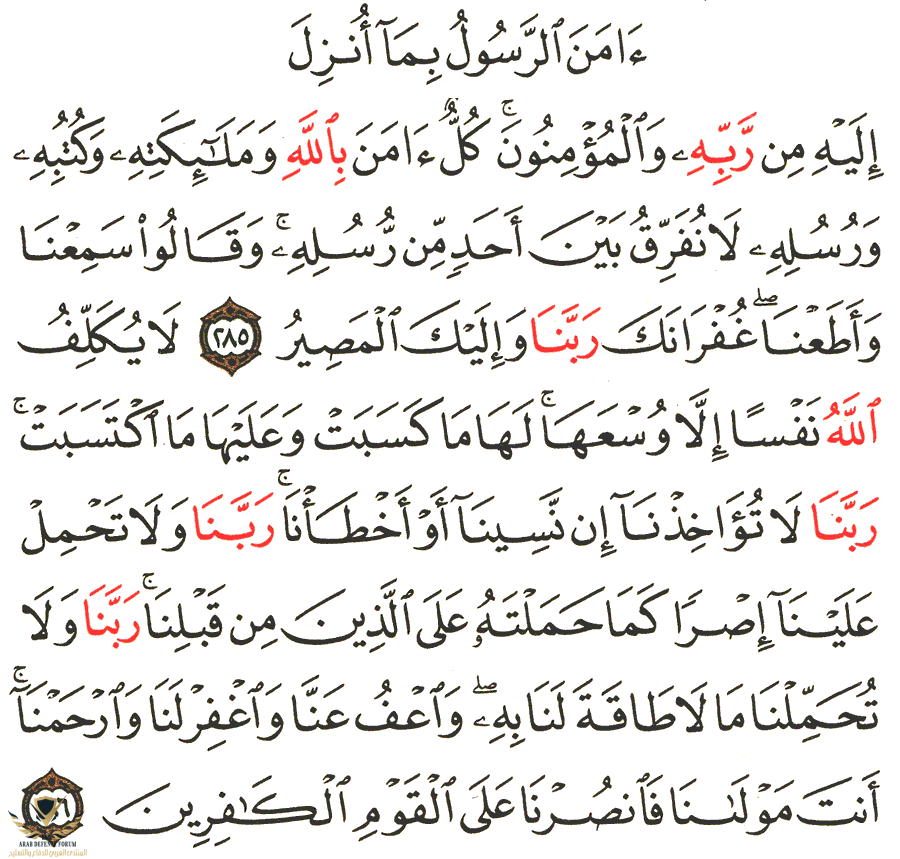 ءَامَنَ ٱلرَّسُولُ بِمَآ أُنزِلَ
إِلَيْهِ مِن رَّبِّهِۦ وَٱلْمُؤْمِنُونَ ۚ كُلٌّ ءَامَنَ بِٱللَّهِ وَمَلَـٰٓئِكَتِهِۦ وَكُتُبِهِۦ
وَرُسُلِهِۦ لَا نُفَرِّقُ بَيْنَ أَحَدٍ مِّن رُّسُلِهِۦ ۚ وَقَالُوا۟ سَمِعْنَا
وَأَطَعْنَا ۖ غُفْرَانَكَ رَبَّنَا وَإِلَيْكَ ٱلْمَصِيرُ ٢٨٥ لَا يُكَلِّفُ
ٱللَّهُ نَفْسًا إِلَّا وُسْعَهَا ۚ لَهَا مَا كَسَبَتْ وَعَلَيْهَا مَا ٱكْتَسَبَتْ ۚ
رَبَّنَا لَا تُؤَاخِذْنَآ إِن نَّسِينَآ أَوْ أَخْطَأْنَا ۚ رَبَّنَا وَلَا تَحْمِلْ
عَلَيْنَآ إِصْرًا كَمَا حَمَلْتَهُۥ عَلَى ٱلَّذِينَ مِن قَبْلِنَا ۚ رَبَّنَا وَلَا
تُحَمِّلْنَا مَا لَا طَاقَةَ لَنَا بِهِۦ ۖ وَٱعْفُ عَنَّا وَٱغْفِرْ لَنَا وَٱرْحَمْنَآ ۚ
أَنتَ مَوْلَىٰنَا فَٱنصُرْنَا عَلَى ٱلْقَوْمِ ٱلْكَـٰفِرِينَ
ARAB DEFENSE FORUM
المنتدى العربي للدفاع والتسليح